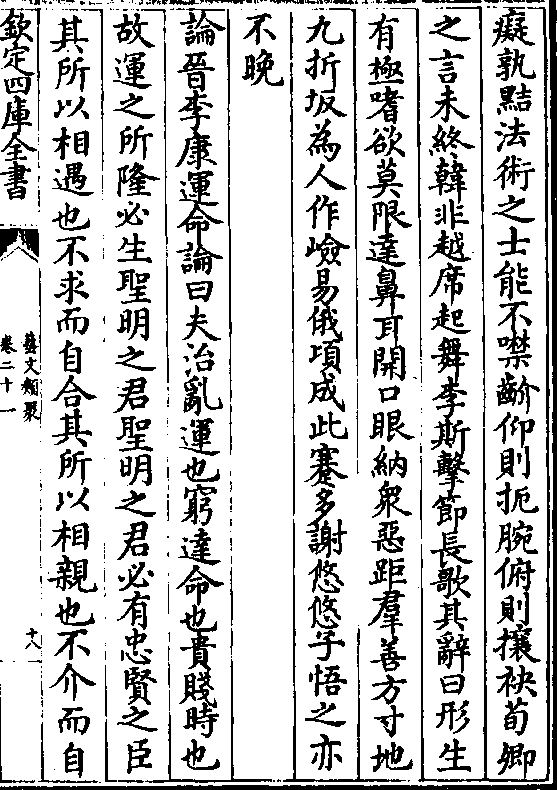 癡孰㸃法術之士能不噤齘仰則扼腕俯則攘袂荀卿
之言未終韓非越席起舞李斯擊節長歌其辭曰形生
有極嗜欲莫限達鼻耳開口眼納衆惡距羣善方寸地
九折坂為人作嶮易俄頃成此蹇多謝悠悠子悟之亦
不晚
論晉李康運命論曰夫治亂運也窮達命也貴賤時也
故運之所隆必生聖明之君聖明之君必有忠賢之臣
其所以相遇也不求而自合其所以相親也不介而自
欽定四庫全書
藝文類聚
卷二十一
十八